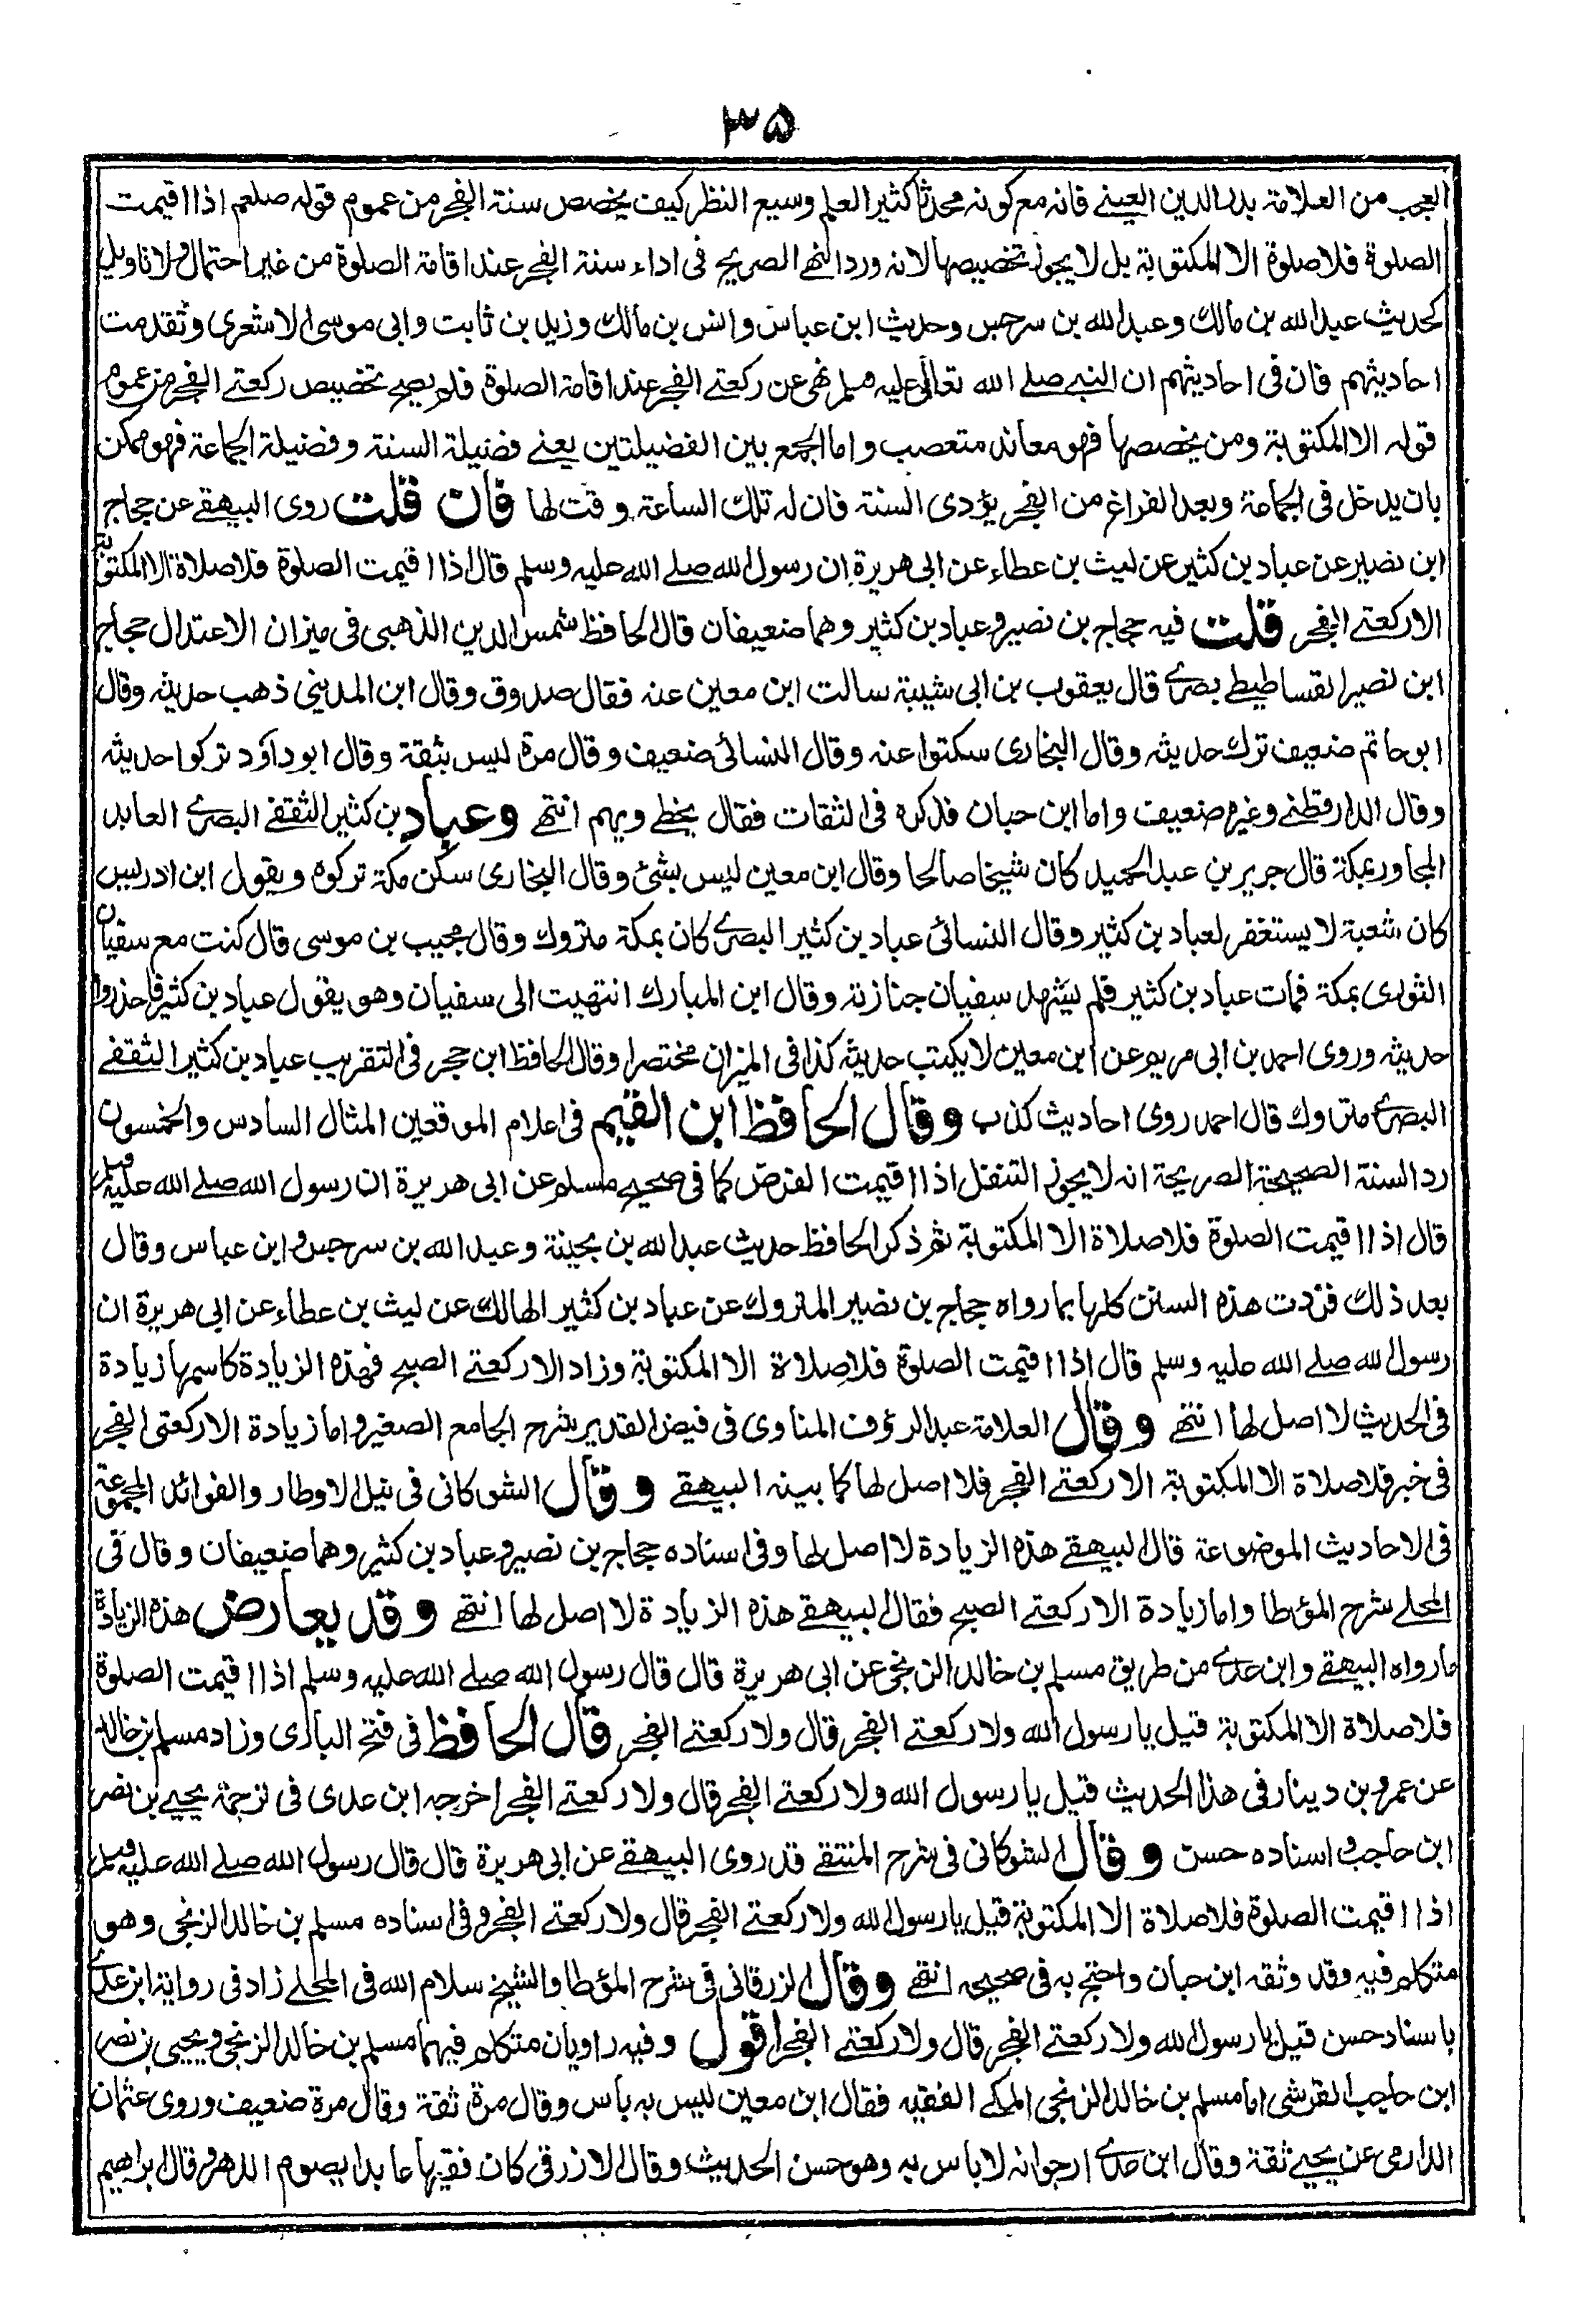 ۳۵
العجب من العلامة بدر الدين العينے فانه مع كونه محدثا كثير العلم وسيع النظر كيف يخصص سنة الفجر من عموم قوله صلعم اذا اقيمت
الصلوة فلا صلوة الا المكتوبة بل لا يجوز تخصيصها لانه ورد النهے الصريح فى اداء سنة الفجر عند اقامة الصلوة من غير احتمال ولا تاويل
كحديث عبد الله بن مالك وعبد الله بن سرجس وحديث ابن عباس وانس بن مالك وزيد بن ثابت وابى موسى الاشعرى وتقدمت
احاديثهم فان فى احاديثهم ان النبے صلے الله تعالى عليه وسلم نهى عن ركعتے الفجر عند اقامة الصلوة فلم يصح تخصيص ركعتے الفجر من عموم
قوله الا المكتوبة ومن يخصصها فهو معاند متعصب واما الجمع بين الفضيلتين يعنے فضيلة السنة وفضيلة الجماعة فهو ممكن
بان يدخل فى الجماعة وبعد الفراغ من الفجر يؤدى السنة فان له تلك الساعة وقت لها فان قلت روى البيهقے عن حجاج
ابن نصير عن عباد بن كثير عن ليث بن عطاء عن ابى هريرة ان رسول الله صلے الله عليه وسلم قال اذا اقيمت الصلوة فلا صلاة الا المكتوبة
الا ركعتے الفجر قلت فيه حجاج بن نصير وعباد بن كثير وهما ضعيفان قال الحافظ شمس الدين الذهبى فى ميزان الاعتدال حجاج
ابن نصير القساطيطے بصرے قال يعقوب بن ابى شيبة سالت ابن معين عنه فقال صدوق وقال ابن المدينى ذهب حديثه وقال
ابو حاتم ضعيف ترك حديثه وقال البخارى سكتوا عنه وقال النسائى ضعيف وقال مرة ليس بثقة وقال ابو داؤد تركوا حديثه
وقال الدارقطنے وغيره ضعيف واما ابن حبان فذكره فى الثقات فقال يخطے ويهم انتهے وعباد بن كثير الثقفے البصرے العابد
المجاور بمكة قال جرير بن عبد الحميد كان شيخا صالحا وقال ابن معين ليس بشئ وقال البخارى سكن مكة تركوه ويقول ابن ادريس
كان شعبة لا يستغفر لعباد بن كثير وقال النسائى عباد بن كثير البصرے كان بمكة متروك وقال مجيب بن موسى قال كنت مع سفيان
الثورى بمكة فمات عباد بن كثير فلم يشهد سفيان جنازته وقال ابن المبارك انتهيت الى سفيان وهو يقول عباد بن كثير فاحذروا
حديثه وروى احمد بن ابى مريم عن ابن معين لا يكتب حديثه كذا فى الميزان مختصرا وقال الحافظ ابن حجر فى التقريب عباد بن كثير الثقفے
البصرے متروك قال احمد روى احاديث كذب وقال الحافظ ابن القيم فى اعلام الموقعين المثال السادس والخمسون
رد السنة الصحيحة الصريحة انه لا يجوز التنفل اذا اقيمت الفرض كما فى صحيح مسلم عن ابى هريرة ان رسول الله صلے الله عليه وسلم
قال اذا اقيمت الصلوة فلا صلاة الا المكتوبة ثم ذكر الحافظ حديث عبد الله بن بحينة وعبد الله بن سرجس وابن عباس وقال
بعد ذلك فردت هذه السنن كلها بما رواه حجاج بن نصير المتروك عن عباد بن كثير الهالك عن ليث بن عطاء عن ابى هريرة ان
رسول لله صلے الله عليه وسلم قال اذا اقيمت الصلوة فلا صلاة الا المكتوبة وزاد الا ركعتے الصبح فهذه الزيادة كاسمها زيادة
فى الحديث لا اصل لها انتهے وقال العلامة عبد الرؤف المناوى فى فيض القدير شرح الجامع الصغير واما زيادة الا ركعتى الفجر
فى خبر فلا صلاة الا المكتوبة الا ركعتے الفجر فلا اصل لها كما بينه البيهقے وقال الشوكانى فى نيل الاوطار والفوائد المجموعة
فى الاحاديث الموضوعة قال البيهقے هذه الزيادة لا اصل لها وفى اسناده حجاج بن نصير وعباد بن كثير وهما ضعيفان وقال فى
المحلے شرح المؤطا واما زيادة الا ركعتے الصبح فقال البيهقے هذه الزيادة لا اصل لها انتهے وقد يعارض هذه الزيادة
ما رواه البيهقے وابن عدے من طريق مسلم بن خالد الزنجى عن ابى هريرة قال قال رسول الله صلے الله عليه وسلم اذا اقيمت الصلوة
فلا صلاة الا المكتوبة قيل يا رسول الله ولا ركعتے الفجر قال ولا ركعتے الفجر قال الحافظ فى فتح البارى وزاد مسلم بن خالد
عن عمرو بن دينار فى هذا الحديث قيل يا رسول الله ولا ركعتے الفجر قال ولا ركعتے الفجر اخرجه ابن عدى فى ترجمة يحيے بن نصر
ابن حاجب واسناده حسن وقال الشوكانى فى شرح المنتقے قد روى البيهقے عن ابى هريرة قال قال رسول الله صلے الله عليه وسلم
اذا اقيمت الصلوة فلا صلاة الا المكتوبة قيل يا رسول لله ولا ركعتے الفجر قال ولا ركعتے الفجر وفى اسناده مسلم بن خالد الزنجى وهو
متكلم فيه وقد وثقه ابن حبان واحتج به فى صحيحه انتهے وقال الزرقانى فى شرح المؤطا والشيخ سلام الله فى المحلے زاد فى رواية ابن عدے
باسناد حسن قيل يا رسول لله ولا ركعتے الفجر قال ولا ركعتے الفجر اقول وفيه راويان متكلم فيهما مسلم بن خالد الزنجى ويحيى بن نصر
ابن حاجب القرشى اما مسلم بن خالد الزنجى المكے الفقيه فقال ابن معين ليس به باس وقال مرة ثقة وقال مرة ضعيف وروى عثمان
الدارمى عن يحيے ثقة وقال ابن عدے ارجو انه لا باس به وهو حسن الحديث وقال الازرقى كان فقيها عابدا يصوم الدهر وقال ابراهيم